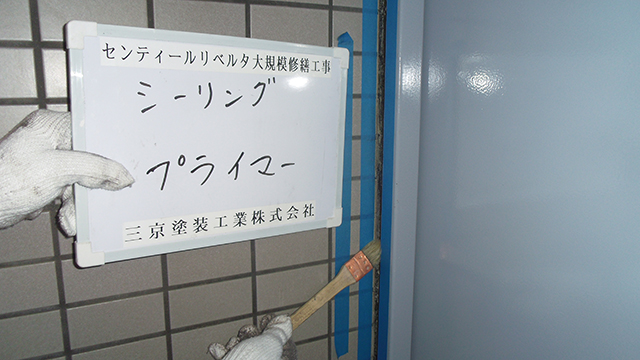 センティールリベルタ大規模修繕工事
シーリング
プライマー
三京塗装工業株式会社